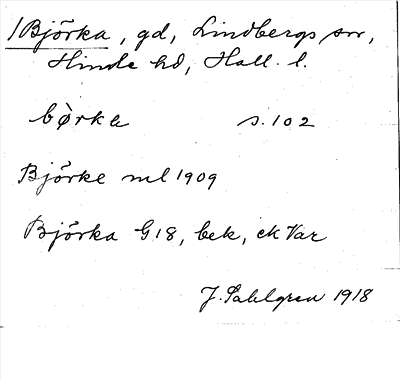 /Björka, gd, Lindbergs sn,
Himle hd, Hall. l.
bòrka s. 102
Björke ml 1909
Björka G18, bek, ek Var
J. Sahlgren 1918